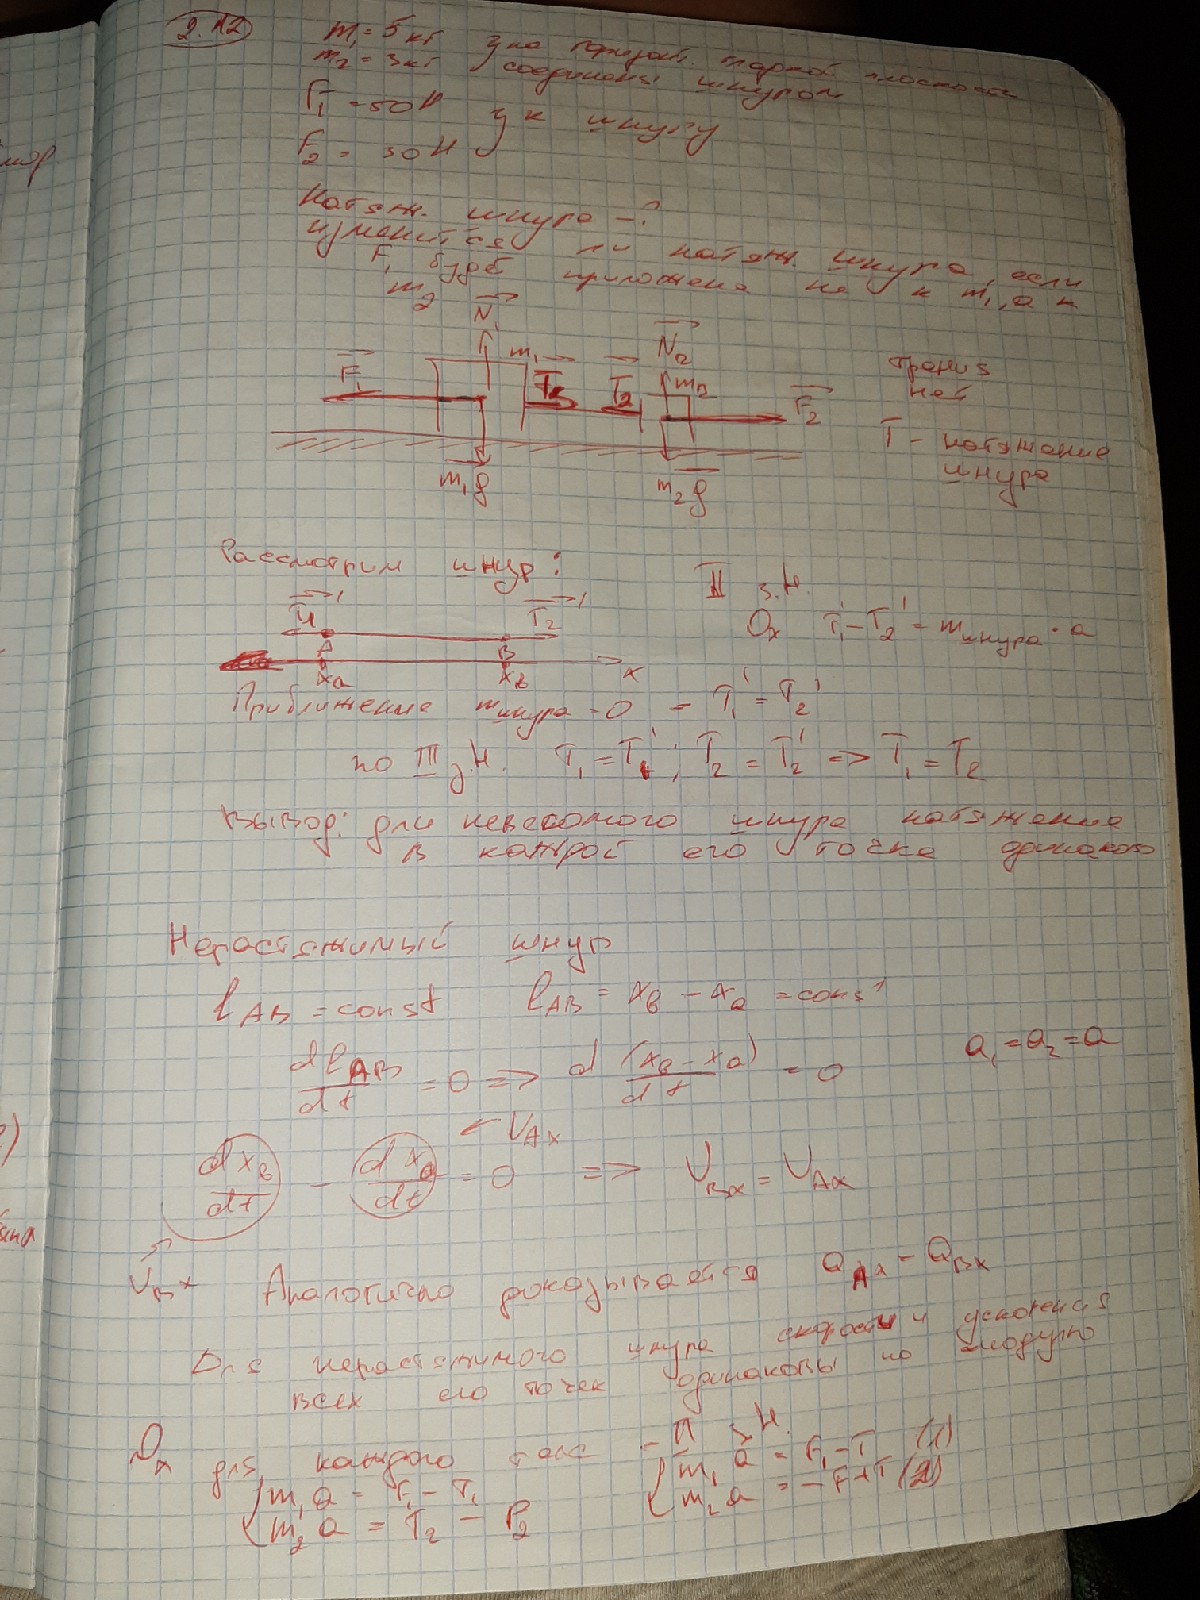 2.12
m₁ = 5 кг
m₂ = 3 кг соединены шнуром
F₁ = 50 Н
F₂ = 30 Н к шнуру
Натяж. шнура - ?
изменится ли натяж. шнура, если
F₁ будет приложена не к m₁, а к
m₂
N₁ m₁ N₂ m₂
F₁ T₂ F₂
m₁g m₂g
трения
нет
T - натяжение
шнура
Рассмотрим шнур:
T₂' II з.Н.
Ox T₁' - T₂' = mшнура · a
A B
xa xb x
Приближение mшнура = 0 - T₁' = T₂'
по III з.Н. T₁ = T₁'; T₂ = T₂' => T₁ = T₂
Вывод: для невесомого шнура натяжение
в каждой его точке одинаково
Нерастяжимый шнур
l AB = const l AB = xв - xa = const
d l AB / dt = 0 => d (xв - xa) / dt = 0 a₁ = a₂ = a
← VAx
dxв / dt - dxa / dt = 0 => VBx = VAx
VBx Аналогично доказывается aAx = aBx
Для нерастяжимого шнура скорости и ускорения
всех его точек одинаковы по модулю
Ox для каждого тела - II з.Н.
m₁ a = F₁ - T₁
m₂ a = T₂ - F₂
m₁ a = F₁ - T (1)
m₂ a = - F + T (2)